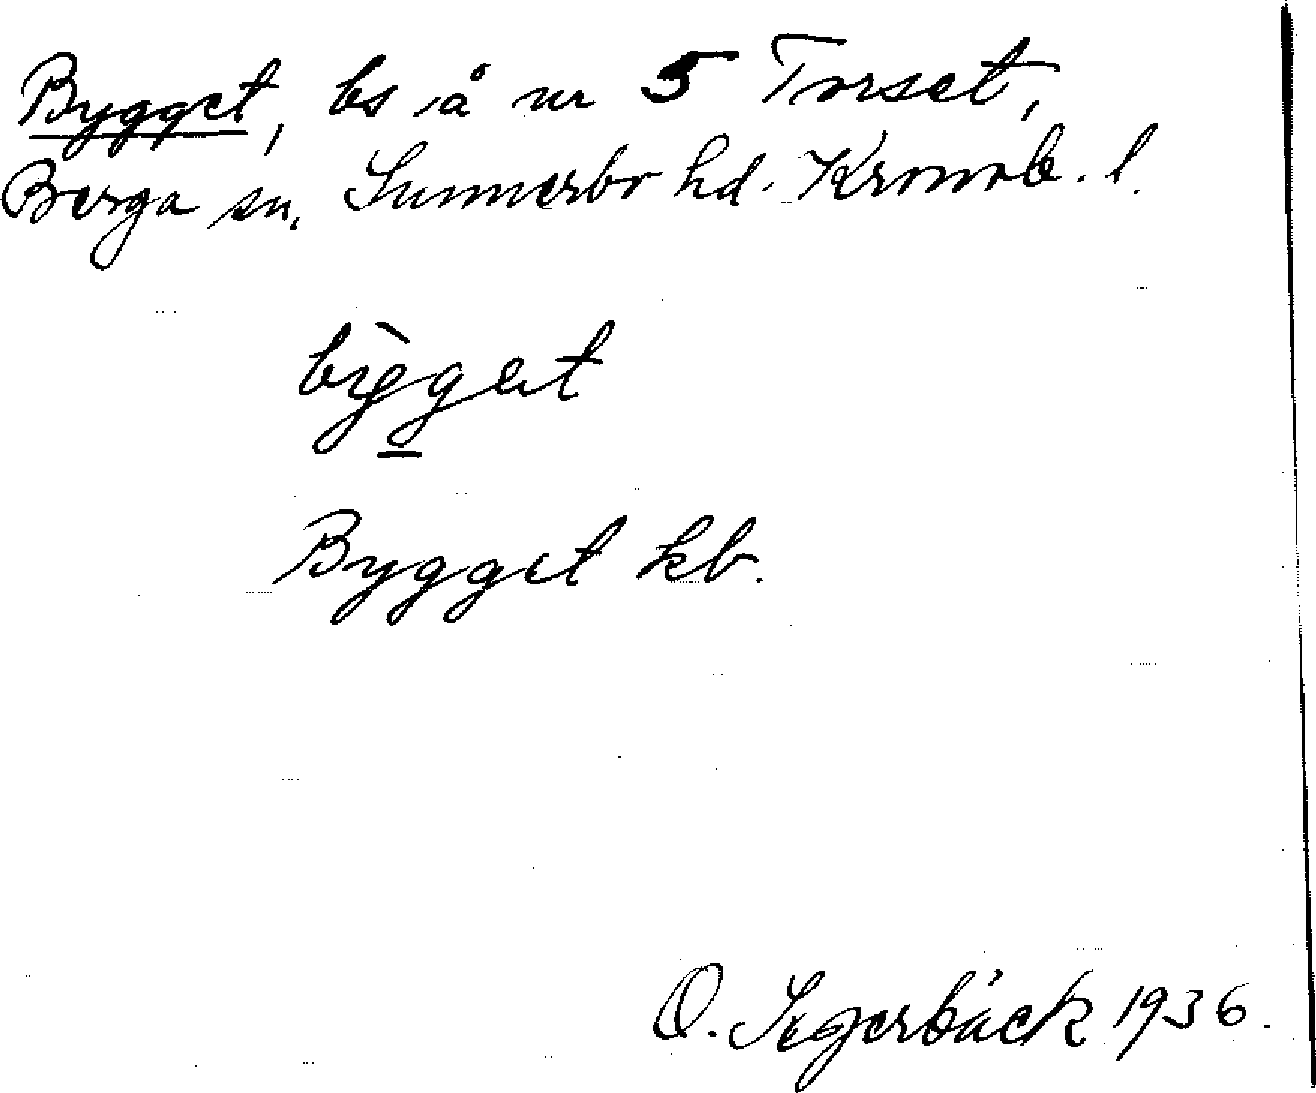 Bygget, bs å nr 5 Torset,
Berga sn. Sunnerbo hd. Kronob. l.
bỳgget
Bygget kb.
O. Segerbäck 1936.